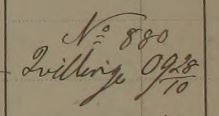 No 880
Zvillinge 0928/10